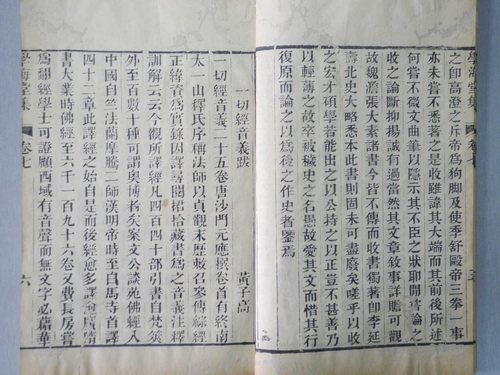 之卽高澄之斥帝爲狗脚及使季舒毆帝三拳一事
亦未嘗不悉著之是收雖諱其大端而其前後所述
何嘗不微文曲筆以隱示其不臣之狀耶開書論之
收之論斷抑揚誠有過當然其文章敘事詳贍可觀
故魏澹張大素諸書今皆不傳而收書獨著卽李延
壽北史大略悉本此書則固未可盡廢矣嗟乎以收
之宏才碩學若能出之以公持之以正豈不甚善乃
以輕薄之故卒被穢史之名愚故愛其文而惜其行
復原而論之以爲後之作史者鑒焉
一切經音義跋
黃子高
一切經音義二十五卷唐沙門元應撰卷首有終南
太一山釋氏序稱法師以貞觀末歷敕召參傳綜經
正緯資爲實錄因譯尋閱捃拾藏書爲之音義注釋
訓解云云今觀所譯經凡四百四十部引書自梵筴
外至百數十種可謂奧博矣案文公談苑佛經入
中國自竺法蘭摩騰二師漢明帝時至白馬寺首譯
四十二章此譯經之始自是而後經愈多譯愈廣隋
書大業時佛經至六千一百九十六卷又費長房嘗
爲翻經學士可證顧西域有音聲而無文字必藉華
學海堂集
卷七
六
學海堂集
卷七
五